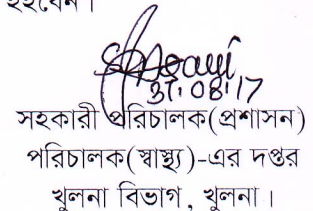 হইবেন।
31.08.17
সহকারী পরিচালক(প্রশাসন)
পরিচালক(স্বাস্থ্য)-এর দপ্তর
খুলনা বিভাগ, খুলনা।